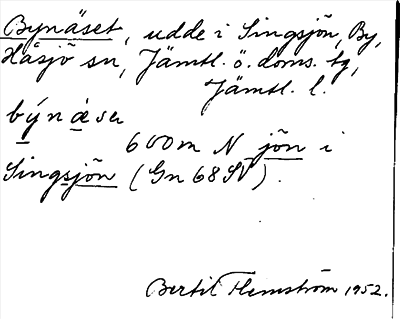 Bynäset, udde i Singsjön, By,
Håsjö sn, Jämtl. ö. doms. tg,
Jämtl. l.
býnǽsa
600 m N jön i
Singsjön (Gn 68 SV).
Bertil Flemström 1952.